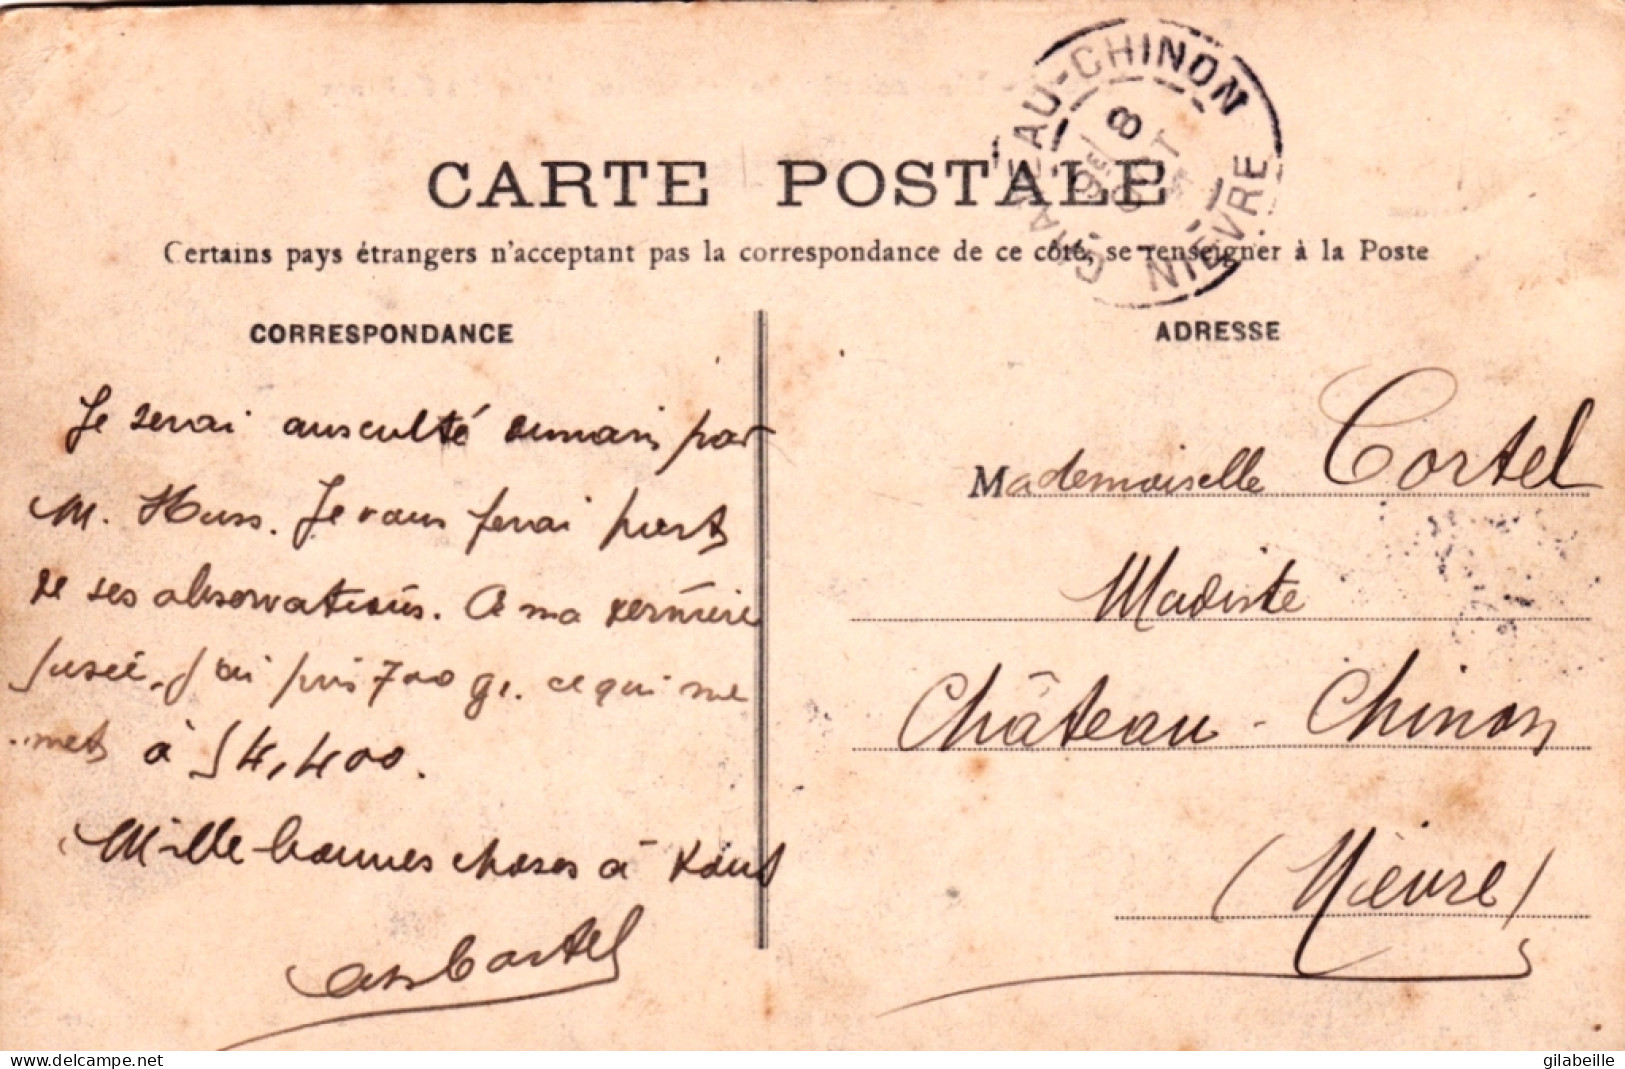 CARTE POSTALE
Certains pays étrangers n'acceptant pas la correspondance de ce côté, se renseigner à la Poste
CHATEAU-CHINON
9E
8
OCT
NIEVRE
CORRESPONDANCE
Je serai ausculté demain par
M. Huss. Je vous ferai part
de ses observations. A ma dernière
pesée, j'ai pris 700 gr. ce qui me
mets à 54,400.
Mille bonnes choses à tous
Cortel
ADRESSE
Mademoiselle Cortel
Modiste
Château-Chinon
(Nièvre)
www.delcampe.net
gilabeille